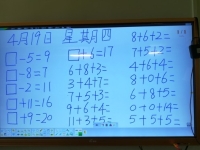 4月19日 星期四
□-5=9
□-8=7
□-2=11
□+11=16
□+9=20
□+6=17
6+8+3=
3+4+7=
7+5+3=
9+6+4=
11+3+5=
8+6+2=
7+5+3=
4+6+4=
8+0+6=
6+8+5=
0+0+14=
5+5+5=